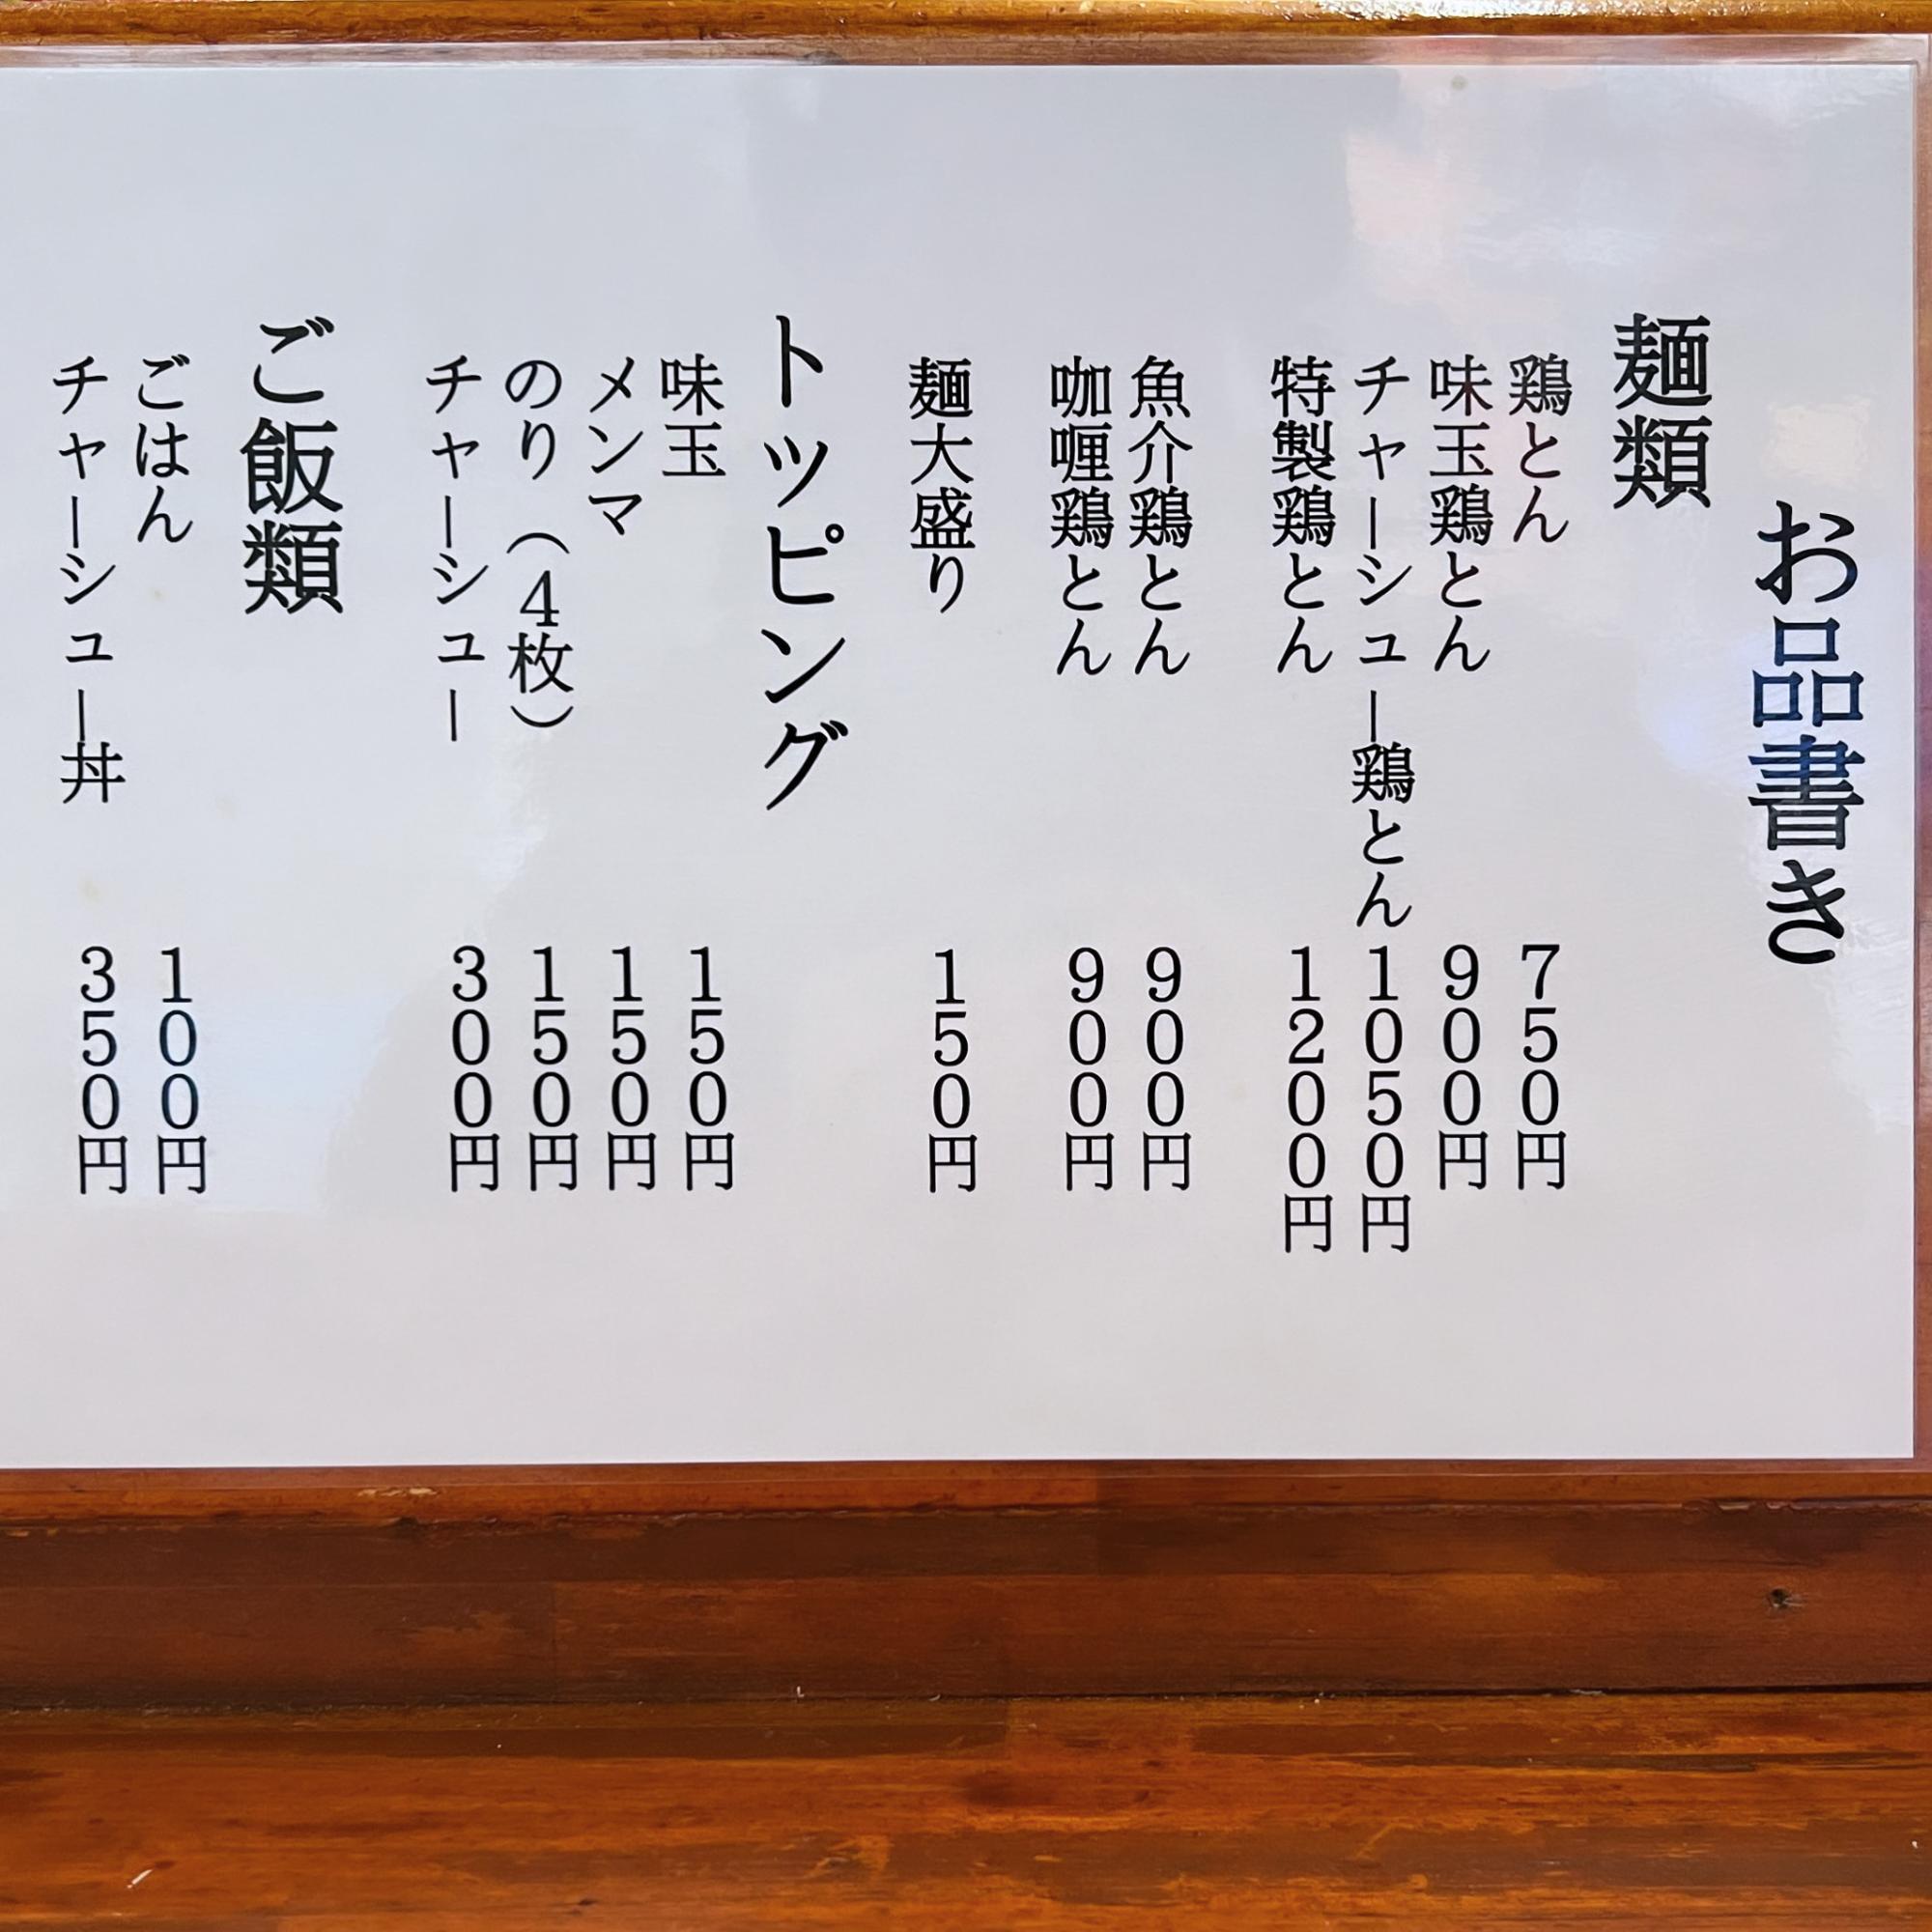 お品書き
麺類
鶏とん 750円
味玉鶏とん 900円
チャーシュー鶏とん 1050円
特製鶏とん 1200円
魚介鶏とん 900円
咖喱鶏とん 900円
麺大盛り 150円
トッピング
味玉 150円
メンマ 150円
のり（4枚） 150円
チャーシュー 300円
ご飯類
ごはん 100円
チャーシュー丼 350円